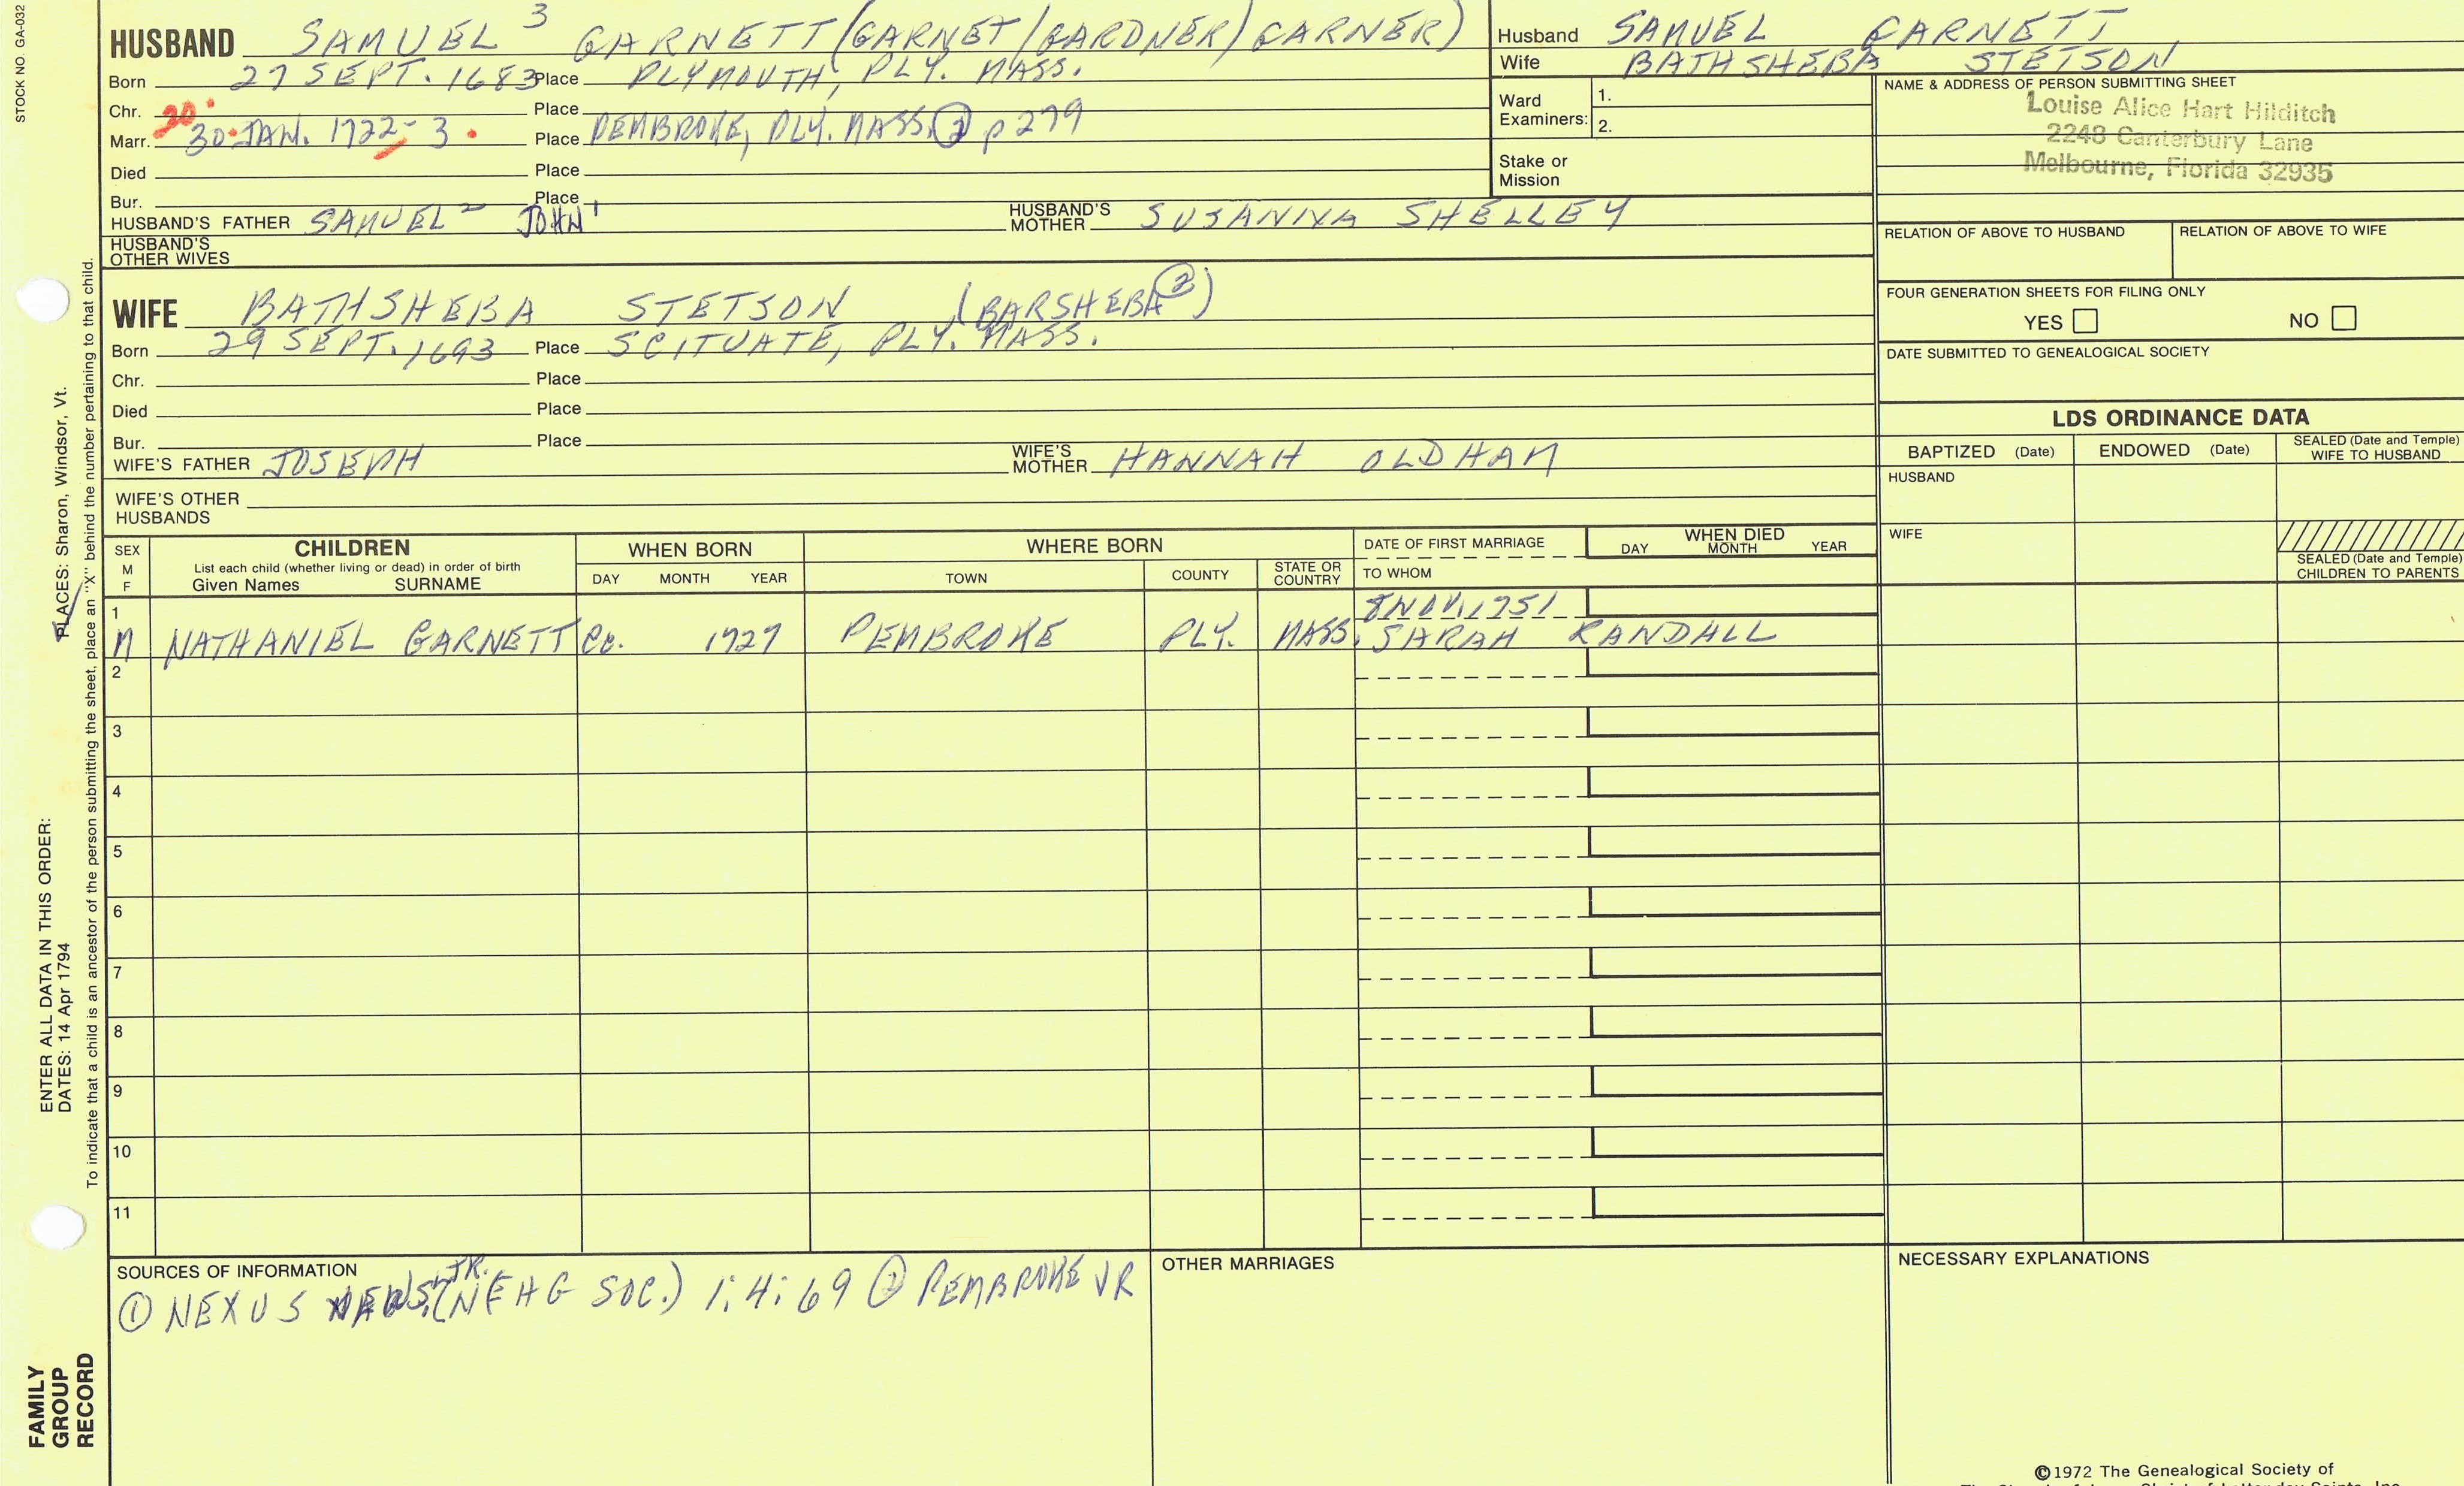 STOCK NO. GA-032
HUSBAND SAMUEL 3 GARNETT (GARNET/GARDNER/GARNER)
Born 27 SEPT. 1683 Place PLYMOUTH, PLY. MASS.
Chr. Place
30.
Marr. 30 JAN. 1722-3. Place PEMBROKE, PLY. MASS. ② p 279
Died Place
Bur. Place
HUSBAND'S FATHER SAMUEL 2 JOHN 1 HUSBAND'S MOTHER SUSANNA SHELLEY
HUSBAND'S OTHER WIVES
Husband SAMUEL GARNETT
Wife BATHSHEBA STETSON
Ward Examiners: 1.
2.
Stake or Mission
NAME & ADDRESS OF PERSON SUBMITTING SHEET
Louise Alice Hart Hilditch
2248 Canterbury Lane
Melbourne, Florida 32935
RELATION OF ABOVE TO HUSBAND RELATION OF ABOVE TO WIFE
FOUR GENERATION SHEETS FOR FILING ONLY
YES NO
DATE SUBMITTED TO GENEALOGICAL SOCIETY
WIFE BATHSHEBA STETSON (BARSHEBA ②)
Born 29 SEPT. 1693 Place SCITUATE, PLY. MASS.
Chr. Place
Died Place
Bur. Place
WIFE'S FATHER JOSEPH WIFE'S MOTHER HANNAH OLDHAM
WIFE'S OTHER HUSBANDS
LDS ORDINANCE DATA
BAPTIZED (Date) ENDOWED (Date) SEALED (Date and Temple) WIFE TO HUSBAND
HUSBAND
WIFE
SEALED (Date and Temple) CHILDREN TO PARENTS
SEX M F
CHILDREN
List each child (whether living or dead) in order of birth
Given Names SURNAME
WHEN BORN
DAY MONTH YEAR
WHERE BORN
TOWN COUNTY STATE OR COUNTRY
DATE OF FIRST MARRIAGE
TO WHOM
WHEN DIED
DAY MONTH YEAR
1 8 NOV. 1751
M NATHANIEL GARNETT Ca. 1727 PEMBROKE PLY. MASS. SARAH RANDALL
2
3
4
5
6
7
8
9
10
11
SOURCES OF INFORMATION
① NEXUS JR. (NEHG SOC.) 1:4:69 ② PEMBROKE VR
OTHER MARRIAGES
NECESSARY EXPLANATIONS
©1972 The Genealogical Society of
The Church of Jesus Christ of Latter-day Saints, Inc.
PLACES: Sharon, Windsor, Vt.
ENTER ALL DATA IN THIS ORDER:
DATES: 14 Apr 1794
To indicate that a child is an ancestor of the person submitting the sheet, place an "X" behind the number pertaining to that child.
FAMILY
GROUP
RECORD